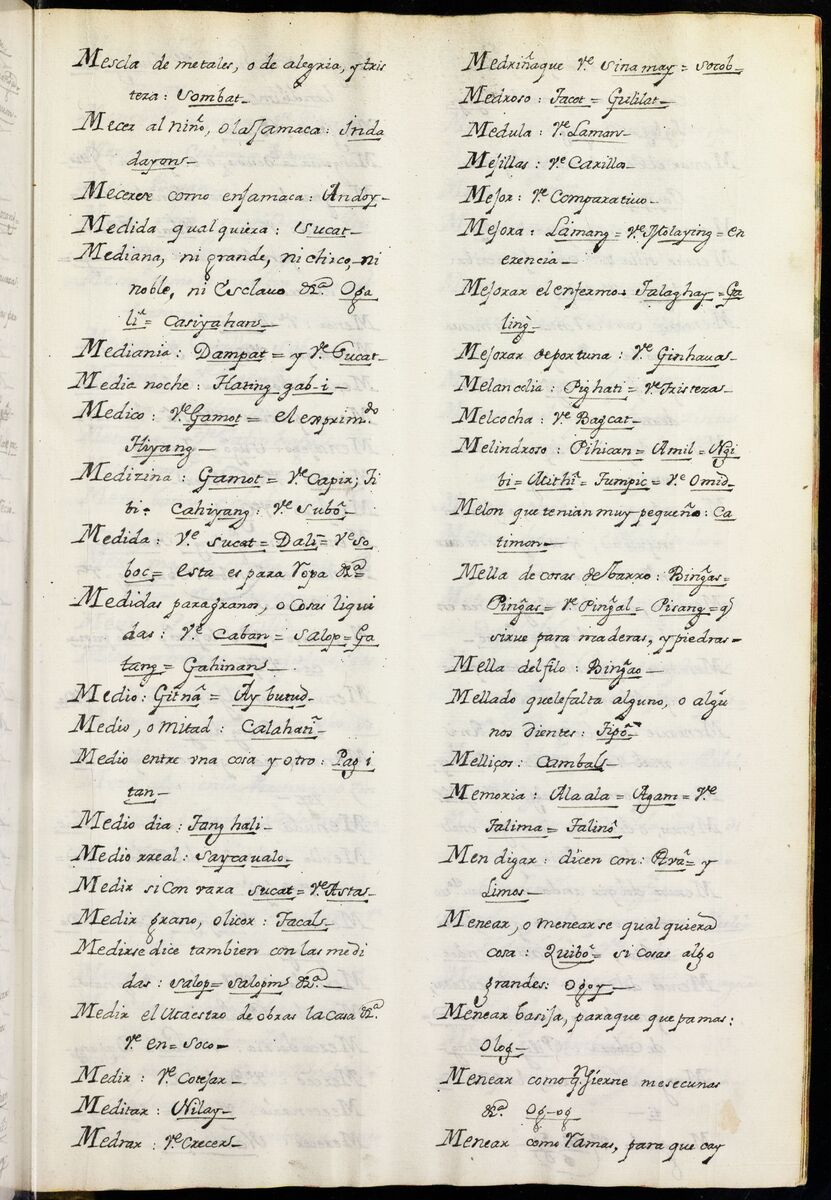 Mescla de metales, o de alegria, y tris
teza: Sombat_
Mecer al niño, o la Jamaca: Irida
dayon_
Mecerse como en Jamaca: Andoy_
Medida qualquiera: Sucat_
Mediana, ni grande, ni chico, ni
noble, ni Esclavo &ª Oga
li^= Casiyahan_
Mediania: Dampat= y Vᵉ Sucat_
Media noche: Hating gab-i_
Medico: Vᵉ Gamot= el exprimᵈᵒ
Hiyang_
Medizina: Gamot= Vᵉ Capir; Ti
bi. Cahiyang: Vᵉ Subô_
Medida: Vᵉ Sucat= Dali= Vᵉ So
boc= esta es para Ropa &ª=
Medidas para granos, o Cosas liqui
das: Vᵉ Caban= Salop= Ga
tang= Gahinan_
Medio: Gitnâ= Ay butud_
Medio, o Mitad: Calahatî_
Medio entre vna cosa y otro: Pag i
tan_
Medio dia: Tanghali_
Medio rreal: Saycaualo_
Medir si con vara Sucat= Vᵉ Astas
Medir grano, o licor: Tacal_
Medirse dice tambien con las medi
das: Salop= Salopin &ª_
Medir el Maestro de obras la casa &ª
Vᵉ en= Soco_
Medir: Vᵉ Cotejar_
Meditar: Nilay_
Medrar: Vᵉ Crecer_
Medriñaque Vᵉ Sinamay= Socob_
Medroso: Tacot= Gulilat_
Medula: Vᵉ Laman_
Mejillas: Vᵉ Carilla_
Mejor: Vᵉ Comparativo_
Mejora: Lamang= Vᵉ Molaying= en
erencia_
Mejorar el enfermo. Talaghay= Ga
ling_
Mejorar de fortuna: Vᵉ Ginhaua_
Melancolia: Pighati= Vᵉ Tristeza_
Melcocha: Vᵉ Bagcat_
Melindroso: Pihican= Amil= Ngi
bi= Matithî= Tumpic= Vᵉ Omid_
Melon que tenian muy pequeño: Ca
timon_
Mella de cosas de barro: Bing̃as=
Ping̃as= Vᵉ Ping̃al= Pisang= q̃
sirue para maderas, y piedras=
Mella del filo: Bing̃ao_
Mellado que le falta alguno, o algu
nos dientes: Tipô_
Melliços: Cambal_
Memoria: Alaala= Agam= Vᵉ
Talima= Talinô
Mendigar: dicen con: Avâ= y
Limos_
Menear, o menearse qualquiera
cosa: Quibô= si cosas algo
grandes: Ogoy_
Menear basija, paraque quepa mas:
Olog_
Menear como qⁿ Zierne mesecunas
&ª. Og-og
Menear como Ramas, para que cay